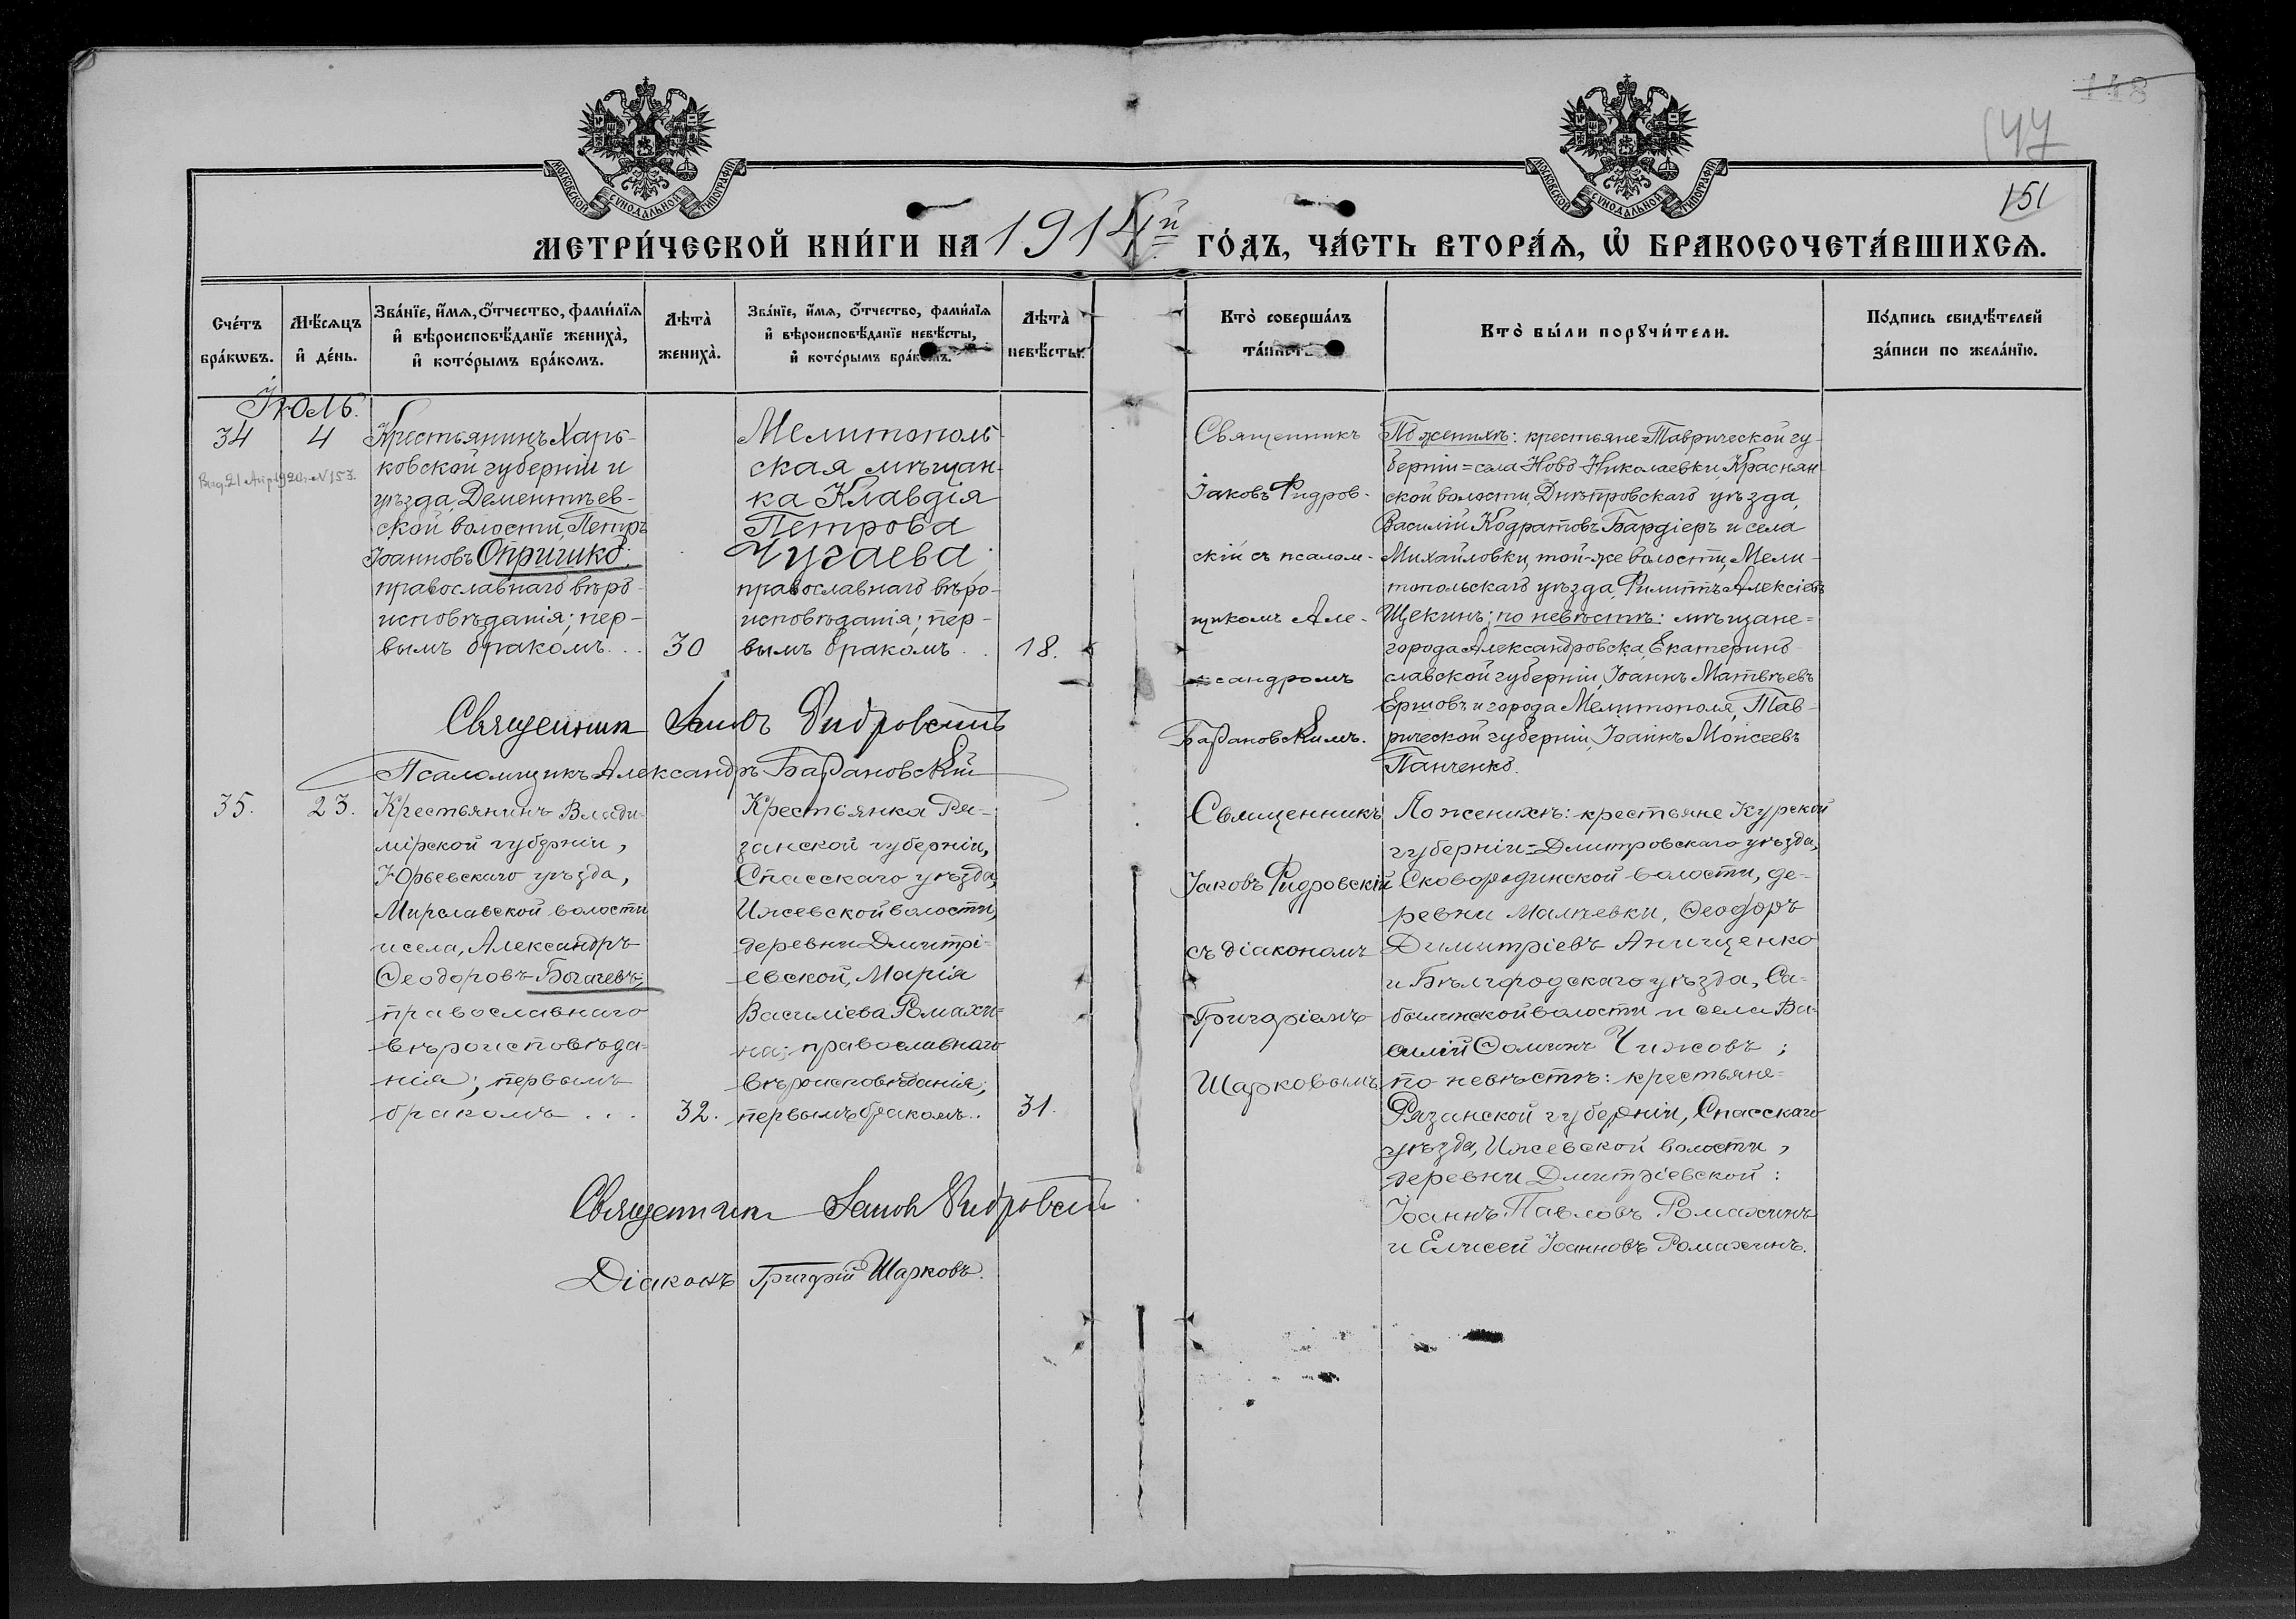 118
147
151
МОСКОВСКОЙ СѴНОДАЛЬНОЙ ТИПОГРАФІИ
МОСКОВСКОЙ СѴНОДАЛЬНОЙ ТИПОГРАФІИ
МЕТРИ́ЧЕСКОЙ КНИ́ГИ НА 1914й ГО́ДЪ, ЧА́СТЬ ВТОРА́Ѧ, Ѡ҆ БРАКОСОЧЕТА́ВШИХСѦ.
Сче́тъ бра́кѡвъ.
Мѣ́сѧцъ и҆ де́нь.
Зва́нїе, и҆́мѧ, ѻ҆́тчество, фами́лїѧ и҆ вѣроисповѣ́данїе жениха̀, и҆ кото́рымъ бра́комъ.
Лѣта̀ жениха̀.
Зва́нїе, и҆́мѧ, ѻ҆́тчество, фами́лїѧ и҆ вѣроисповѣ́данїе невѣ́сты, и҆ кото́рымъ бра́комъ.
Лѣта̀ невѣ́сты.
Кто̀ соверша́лъ
Кто̀ бы́ли порꙋчи́тели.
По́дпись свидѣ́телей за́писи по жела́нїю.
Іюль.
34
4
Крестьянинъ Харь-
ковской губерніи и
уѣзда, Дементѣев-
ской волости, Петръ
Іоанновъ Опришко;
православнаго вѣро-
исповѣданія; пер-
вымъ бракомъ...
30
Мелитополь-
ская мѣщан-
ка Клавдія
Петрова
Чугаева;
православнаго вѣро-
исповѣданія; пер-
вымъ бракомъ..
18.
Священникъ
Іаковъ Фидров-
скій съ псалом-
щикомъ Але-
ксандромъ
Барановскимъ.
По женихѣ: крестьяне=Таврической гу-
берніи=села Ново-Николаевки, Краснян-
ской волости, Днѣпровскаго уѣзда,
Василій Кодратовъ Бардіеръ и села
Михайловки, той-же волости, Мели-
топольскаго уѣзда, Филиппъ Алексіевъ
Щекинъ; по невѣстѣ: мѣщане=
города Александровска, Екатерино-
славской губерніи, Іоаннъ Матвѣевъ
Ершовъ и города Мелитополя, Тав-
рической губерніи, Іоаннъ Моисеевъ
Панченко.
Священникъ Іаковъ Фидровскій
Псаломщикъ Александръ Барановскій
35.
23.
Крестьянинъ Влади-
мірской губерніи,
Юрьевскаго уѣзда,
Мирславской волости
и села, Александръ
Ѳеодоровъ Богачевъ;
православнаго
вѣроисповѣда-
нія; первымъ
бракомъ...
32.
Крестьянка Ря-
занской губерніи,
Спасскаго уѣзда,
Ижевской волости,
деревни Дмитрі-
евской, Марія
Василіева Ромахи-
на; православнаго
вѣроисповѣданія;
первымъ бракомъ..
31.
Священникъ
Іаковъ Фидровскій
съ діакономъ
Григоріемъ
Шарковымъ
По женихѣ: крестьяне Курской
губерніи=Дмитровскаго уѣзда,
Сковородинской волости, де-
ревни Малѣевки, Ѳеодоръ
Димитріевъ Анищенко
и Бѣлгородскаго уѣзда, Са-
бынинской волости и села Ва-
силій Ѳоминъ Чижовъ;
по невѣстѣ: крестьяне=
Рязанской губерніи, Спасскаго
уѣзда, Ижевской волости,
деревни Дмитріевской:
Іоаннъ Павловъ Ромахинъ
и Елисей Іоанновъ Ромахинъ.
Священникъ Іаковъ Фидровскій
Діаконъ Григорій Шарковъ.